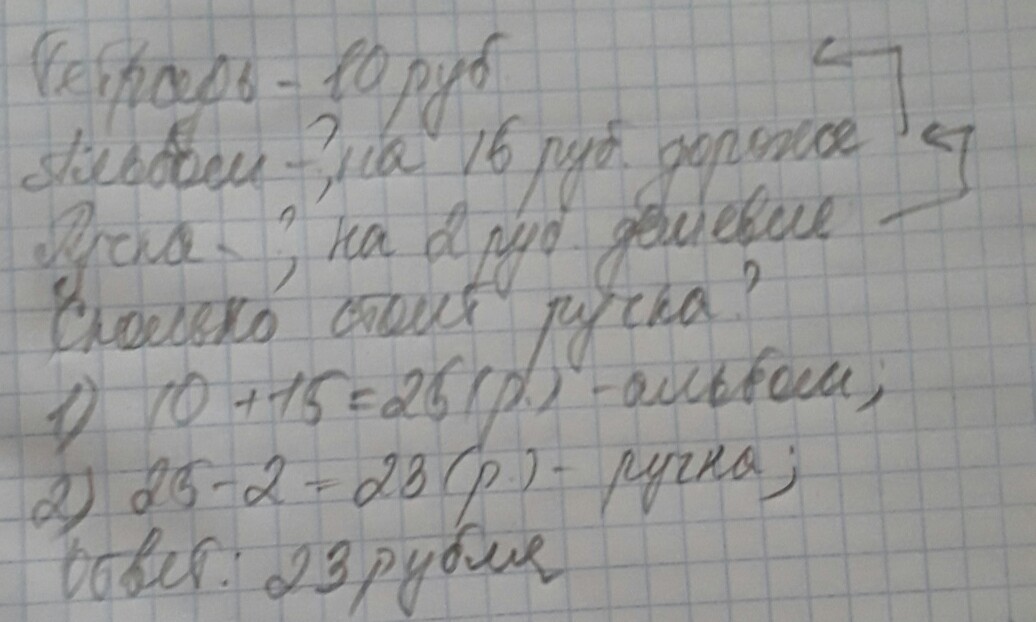 Тетрадь - 10 руб
Альбом - ?, на 15 руб. дороже
Ручка - ?, на 2 руб. дешевле
Сколько стоит ручка?
1) 10 + 15 = 25 (р.) - альбом;
2) 25 - 2 = 23 (р.) - ручка;
Ответ: 23 рубля